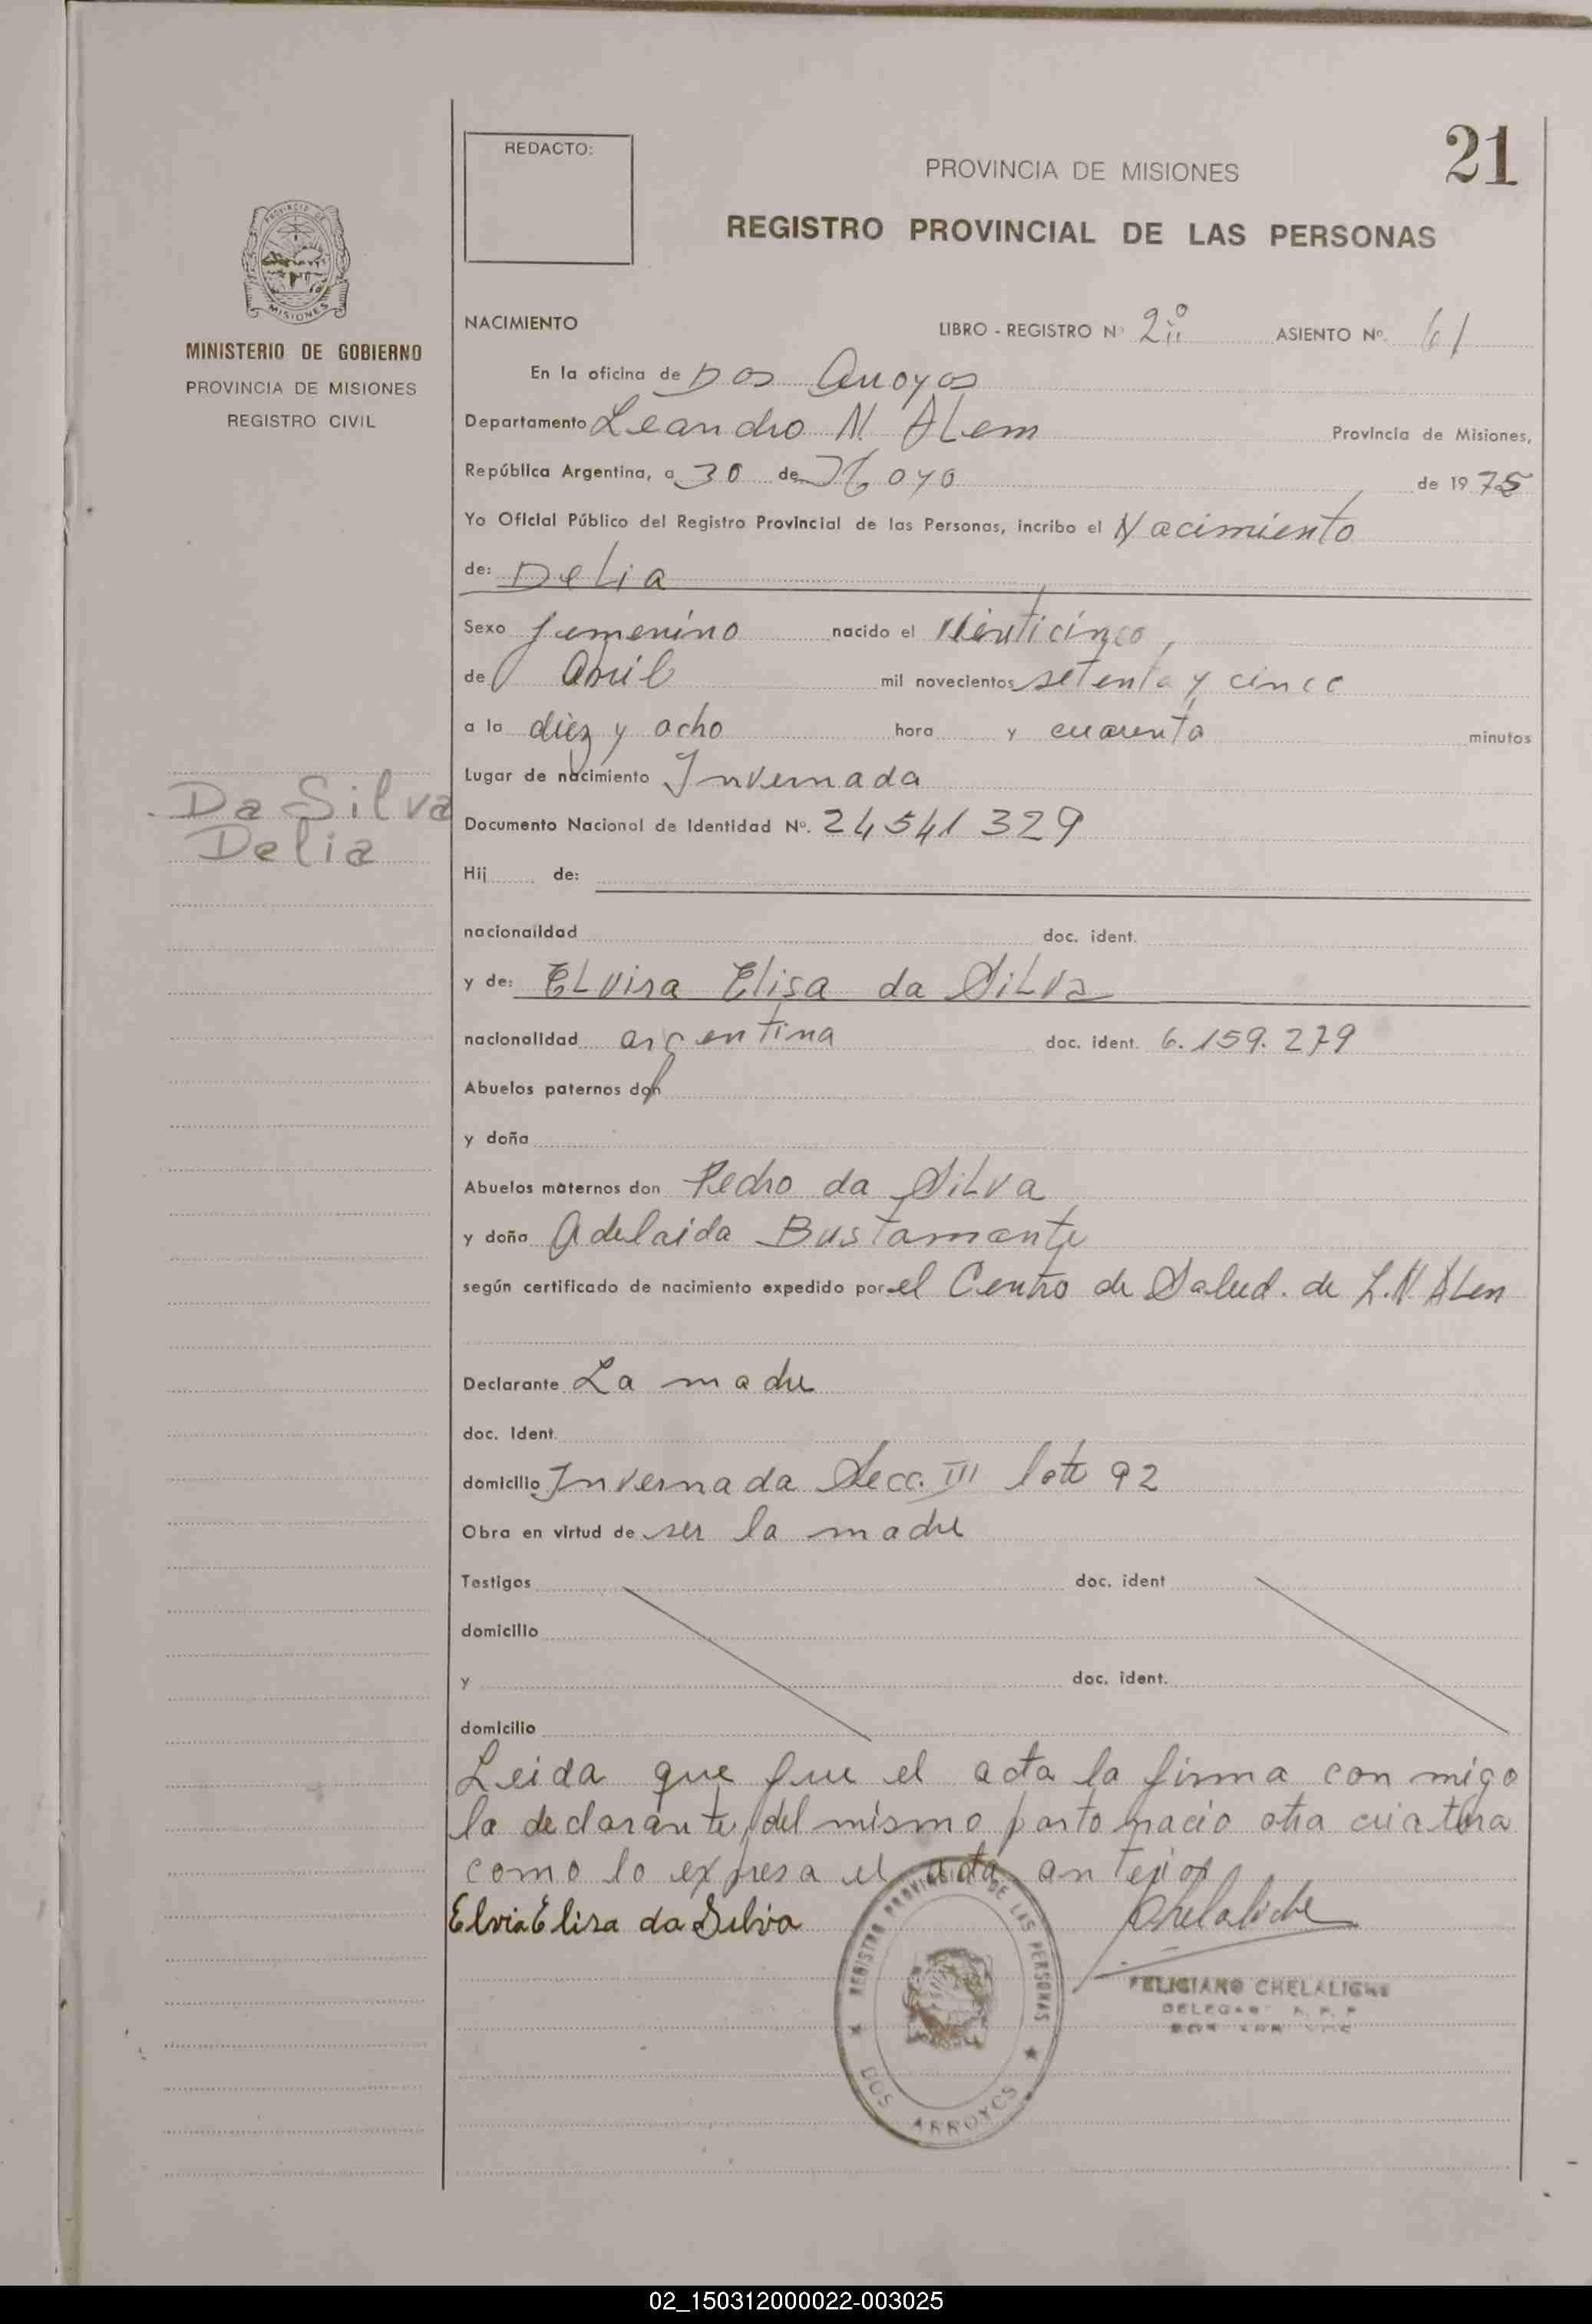 REDACTO:
PROVINCIA DE MISIONES
21
REGISTRO PROVINCIAL DE LAS PERSONAS
PROVINCIA DE
MISIONES
MINISTERIO DE GOBIERNO
PROVINCIA DE MISIONES
REGISTRO CIVIL
NACIMIENTO LIBRO - REGISTRO Nº 2º ASIENTO Nº. 61
En la oficina de Dos Arroyos
Departamento Leandro N. Alem Provincia de Misiones,
República Argentina, a 30 de Mayo de 1975
Yo Oficial Público del Registro Provincial de las Personas, incribo el Nacimiento
de: Delia
Sexo femenino nacido el Veinticinco,
de Abril mil novecientos setenta y cinco
a la diez y ocho hora y cuarenta minutos
Lugar de nacimiento Invernada
Da Silva
Delia
Documento Nacional de Identidad Nº. 24541329
Hij de:
nacionalidad doc. ident.
y de: Elvira Elisa da Silva
nacionalidad argentina doc. ident. 6.159.279
Abuelos paternos don
y doña
Abuelos maternos don Pedro da Silva
y doña Adelaida Bustamante
según certificado de nacimiento expedido por el Centro de Salud. de L.N. Alen
Declarante La madre
doc. Ident.
domicilio Invernada Secc. III lote 92
Obra en virtud de ser la madre
Testigos doc. ident
domicilio
y doc. ident.
domicilio
Leida que fue el acta la firma con migo
la declarante, del mismo parto nacio otra criatura
como lo expresa el acta anterior
Elvia Elisa da Silva Chelaliche
REGISTRO PROVINCIAL DE LAS PERSONAS
DOS ARROYOS
FELICIANO CHELALICHE
02_150312000022-003025